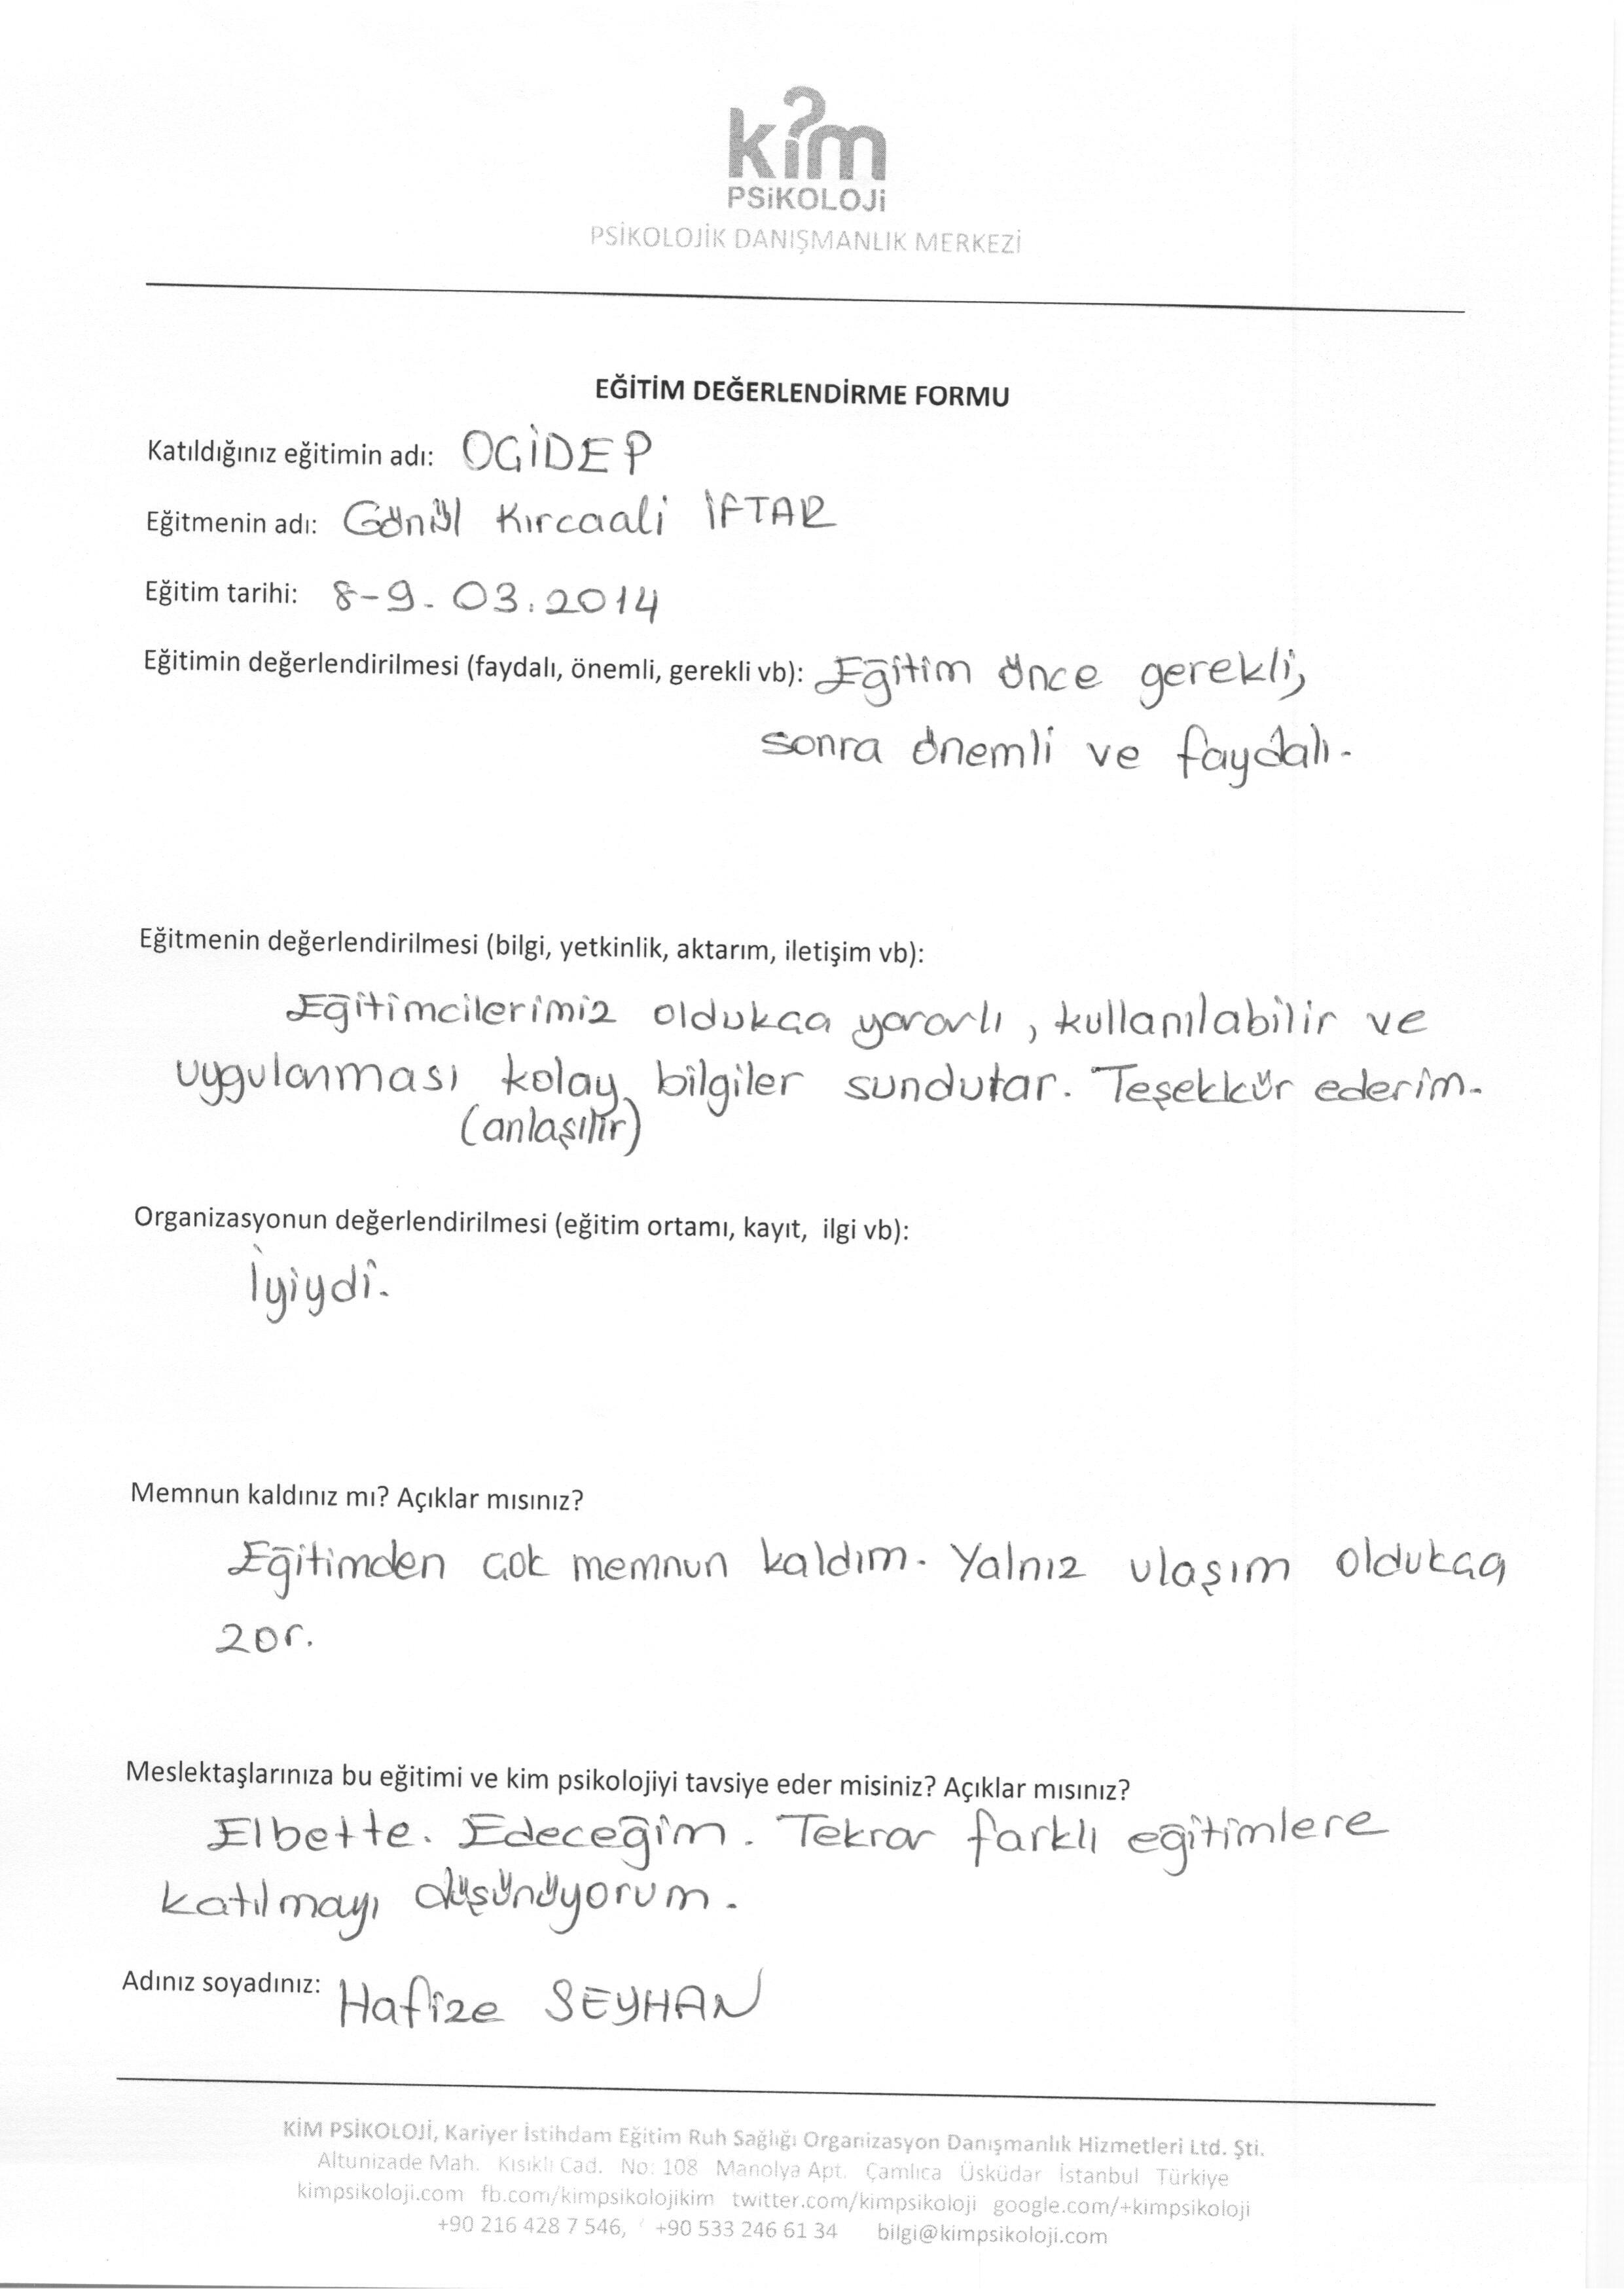 kim
PSiKOLOJi
PSİKOLOJİK DANIŞMANLIK MERKEZİ
EĞİTİM DEĞERLENDİRME FORMU
Katıldığınız eğitimin adı: OGİDEP
Eğitmenin adı: Gönül Kırcaali İFTAR
Eğitim tarihi: 8-9. 03.2014
Eğitimin değerlendirilmesi (faydalı, önemli, gerekli vb): Eğitim önce gerekli,
sonra önemli ve faydalı.
Eğitmenin değerlendirilmesi (bilgi, yetkinlik, aktarım, iletişim vb):
Eğitimcilerimiz oldukca yararlı, kullanılabilir ve
uygulanması kolay, bilgiler sundular. Teşekkür ederim.
(anlaşılır)
Organizasyonun değerlendirilmesi (eğitim ortamı, kayıt, ilgi vb):
İyiydi.
Memnun kaldınız mı? Açıklar mısınız?
Eğitimden cok memnun kaldım. Yalnız ulaşım oldukca
zor.
Meslektaşlarınıza bu eğitimi ve kim psikolojiyi tavsiye eder misiniz? Açıklar mısınız?
Elbette. Edeceğim. Tekrar farklı eğitimlere
katılmayı düşünüyorum.
Adınız soyadınız: Hafize SEYHAN
KİM PSİKOLOJİ, Kariyer İstihdam Eğitim Ruh Sağlığı Organizasyon Danışmanlık Hizmetleri Ltd. Şti.
Altunizade Mah. Kısıklı Cad. No: 108 Manolya Apt. Çamlıca Üsküdar İstanbul Türkiye
kimpsikoloji.com fb.com/kimpsikolojikim twitter.com/kimpsikoloji google.com/+kimpsikoloji
+90 216 428 7 546, +90 533 246 61 34 bilgi@kimpsikoloji.com